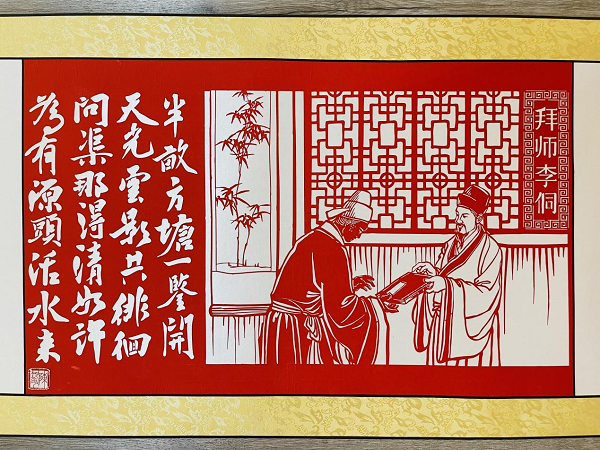 拜师李侗
半畝方塘一鑒開
天光雲影共徘徊
問渠那得清如許
为有源頭活水来